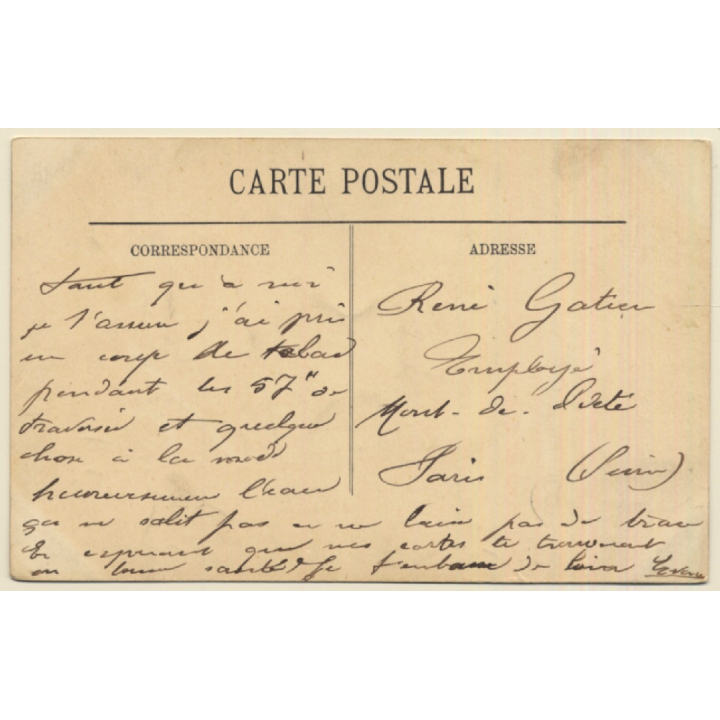 CARTE POSTALE
CORRESPONDANCE
ADRESSE
Tant qu'à moi
je t'assure j'ai pris
un coup de tabac
pendant les 57" de
traversée et quelque
chose à la mode
heureusement l'eau
qui ne salit pas et ne laisse pas de trace
En espérant que mes cartes te trouveront
en bonne santé Je t'embrasse de loin
René Gatier
Employé
Mont-de-Piété
Paris (Seine)